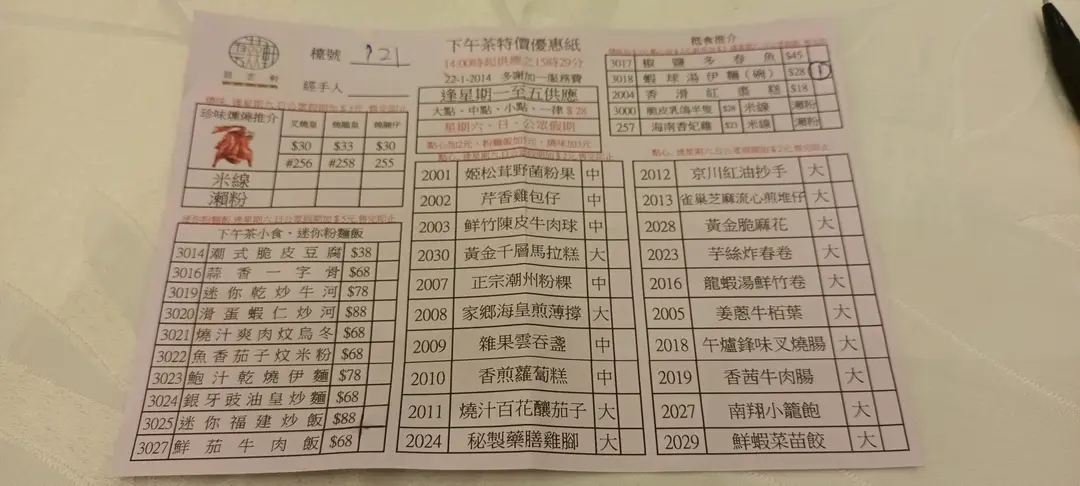 檯號 121
經手人
下午茶特價優惠紙
14:00時起供應之15時29分
22-1-2014 多謝加一服務費
逢星期一至五供應
大點、中點、小點、一律 $28
星期六、日、公眾假期
點心加2元,粉麵飯加5元,燒味加5元
珍味燻燒推介
$30 $33 $30
#256 #258 255
米線
瀨粉
迷你粉麵飯,逢星期六日公眾假期加$5元,售完即止
下午茶小食‧迷你粉麵飯
3014 潮式脆皮豆腐 $38
3016 蒜香一字骨 $68
3019 迷你乾炒牛河 $78
3020 滑蛋蝦仁炒河 $88
3021 燒汁爽肉炆烏冬 $68
3022 魚香茄子炆米粉 $68
3023 鮑汁乾燒伊麵 $78
3024 銀牙豉油皇炒麵 $68
3025 迷你福建炒飯 $88
3027 鮮茄牛肉飯 $68
點心,逢星期六日公眾假期加$2元,售完即止
2001 姬松茸野菌粉果 中
2002 芹香雞包仔 中
2003 鮮竹陳皮牛肉球 中
2030 黃金千層馬拉糕 大
2007 正宗潮州粉粿 中
2008 家鄉海皇煎薄撐 大
2009 雜果雲吞盞 中
2010 香煎蘿蔔糕 中
2011 燒汁百花釀茄子 大
2024 秘製藥膳雞腳 大
3017 椒鹽多春魚 $45
3018 蝦球湯伊麵(碗) $28 1
2004 香滑紅棗糕 $18
3000 脆皮乳鴿半隻 $28 米線 瀨粉
257 海南香妃雞 $23 米線 瀨粉
點心,逢星期六日公眾假期加$2元,售完即止
2012 京川紅油抄手 大
2013 雀巢芝麻流心煎堆仔 大
2028 黃金脆麻花 大
2023 芋絲炸春卷 大
2016 龍蝦湯鮮竹卷 大
2005 姜蔥牛栢葉 大
2018 午爐鋒味叉燒腸 大
2019 香茜牛肉腸 大
2027 南翔小籠飽 大
2029 鮮蝦菜苗餃 大